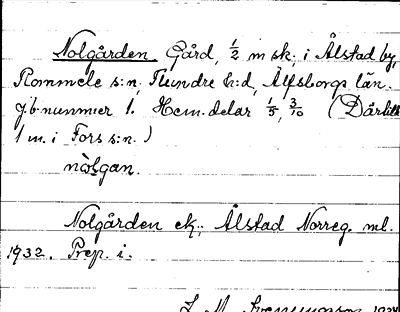 Nolgården. Gård, 1/2 m sk. i Ålstad by,
Rommele s:n, Flundre h:d, Älfsborgs län.
J:b:nummer 1. Hem. delar 1/5, 3/10 (Därtill
1 m. i Fors s:n.)
nòlgan.
Nolgården ek., Ålstad Norreg. ml.
1932. Prep. i.